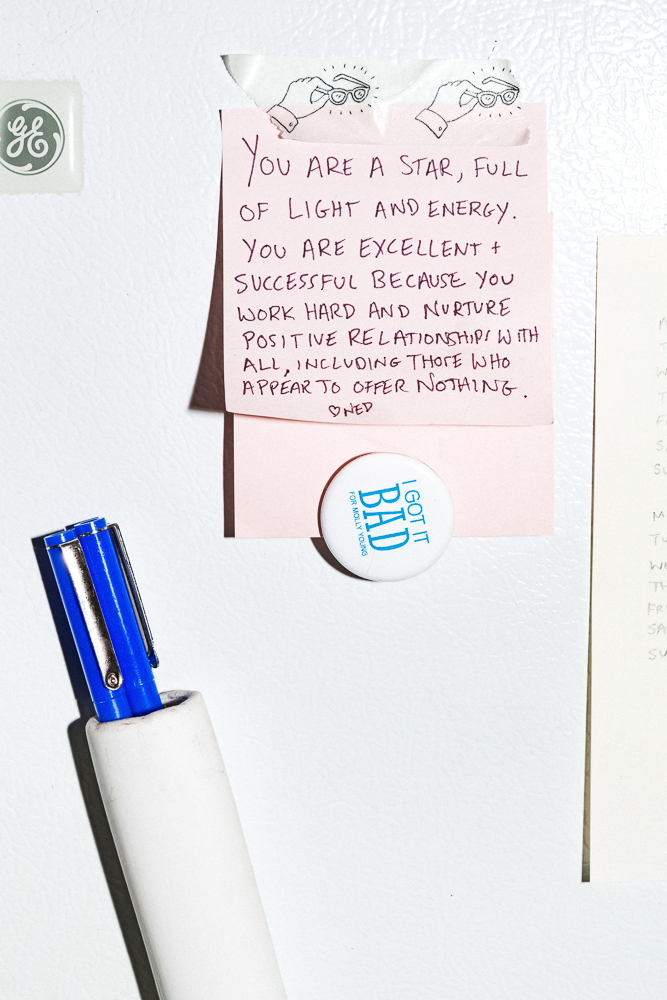 GE
YOU ARE A STAR, FULL
OF LIGHT AND ENERGY.
YOU ARE EXCELLENT +
SUCCESSFUL BECAUSE YOU
WORK HARD AND NURTURE
POSITIVE RELATIONSHIPS WITH
ALL, INCLUDING THOSE WHO
APPEAR TO OFFER NOTHING.
♡NED
I GOT IT
BAD
FOR MOLLY YOUNG
M
T
W
T
F
S
SU
M
TU
W
TH
FR
SA
SU